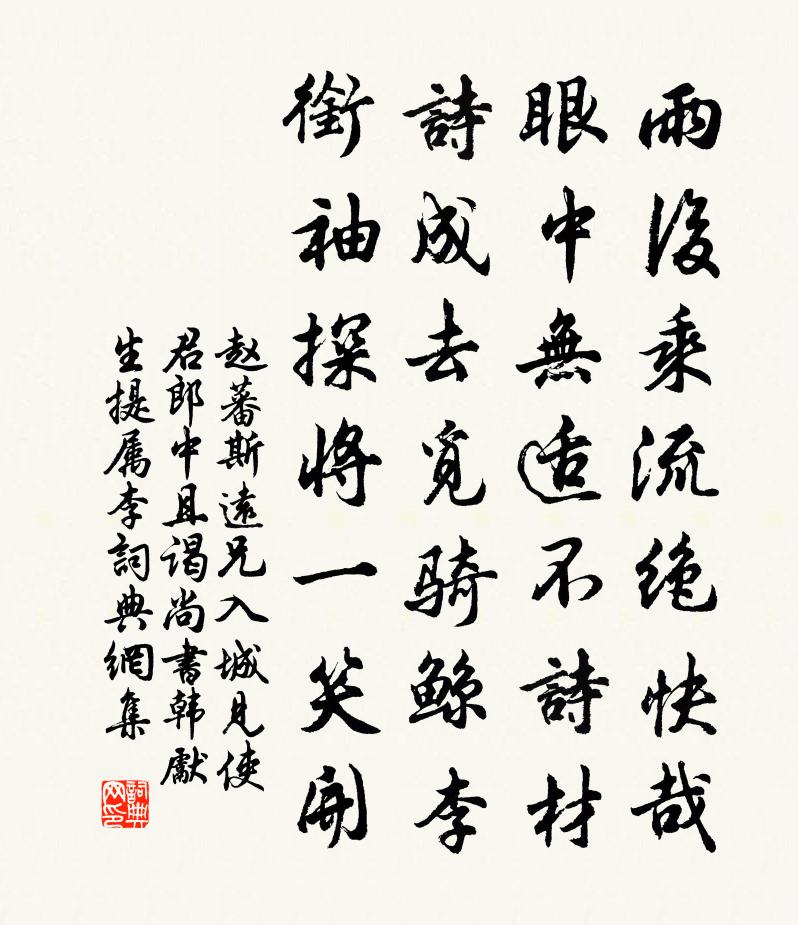 雨後乘流絶快哉
眼中無适不詩材
詩成去覓骑鯨李
銜袖探將一笑開
赵蕃斯遠兄入城見使
君郎中且谒尚書韩獻
生提属李詞典網集
詞典网印